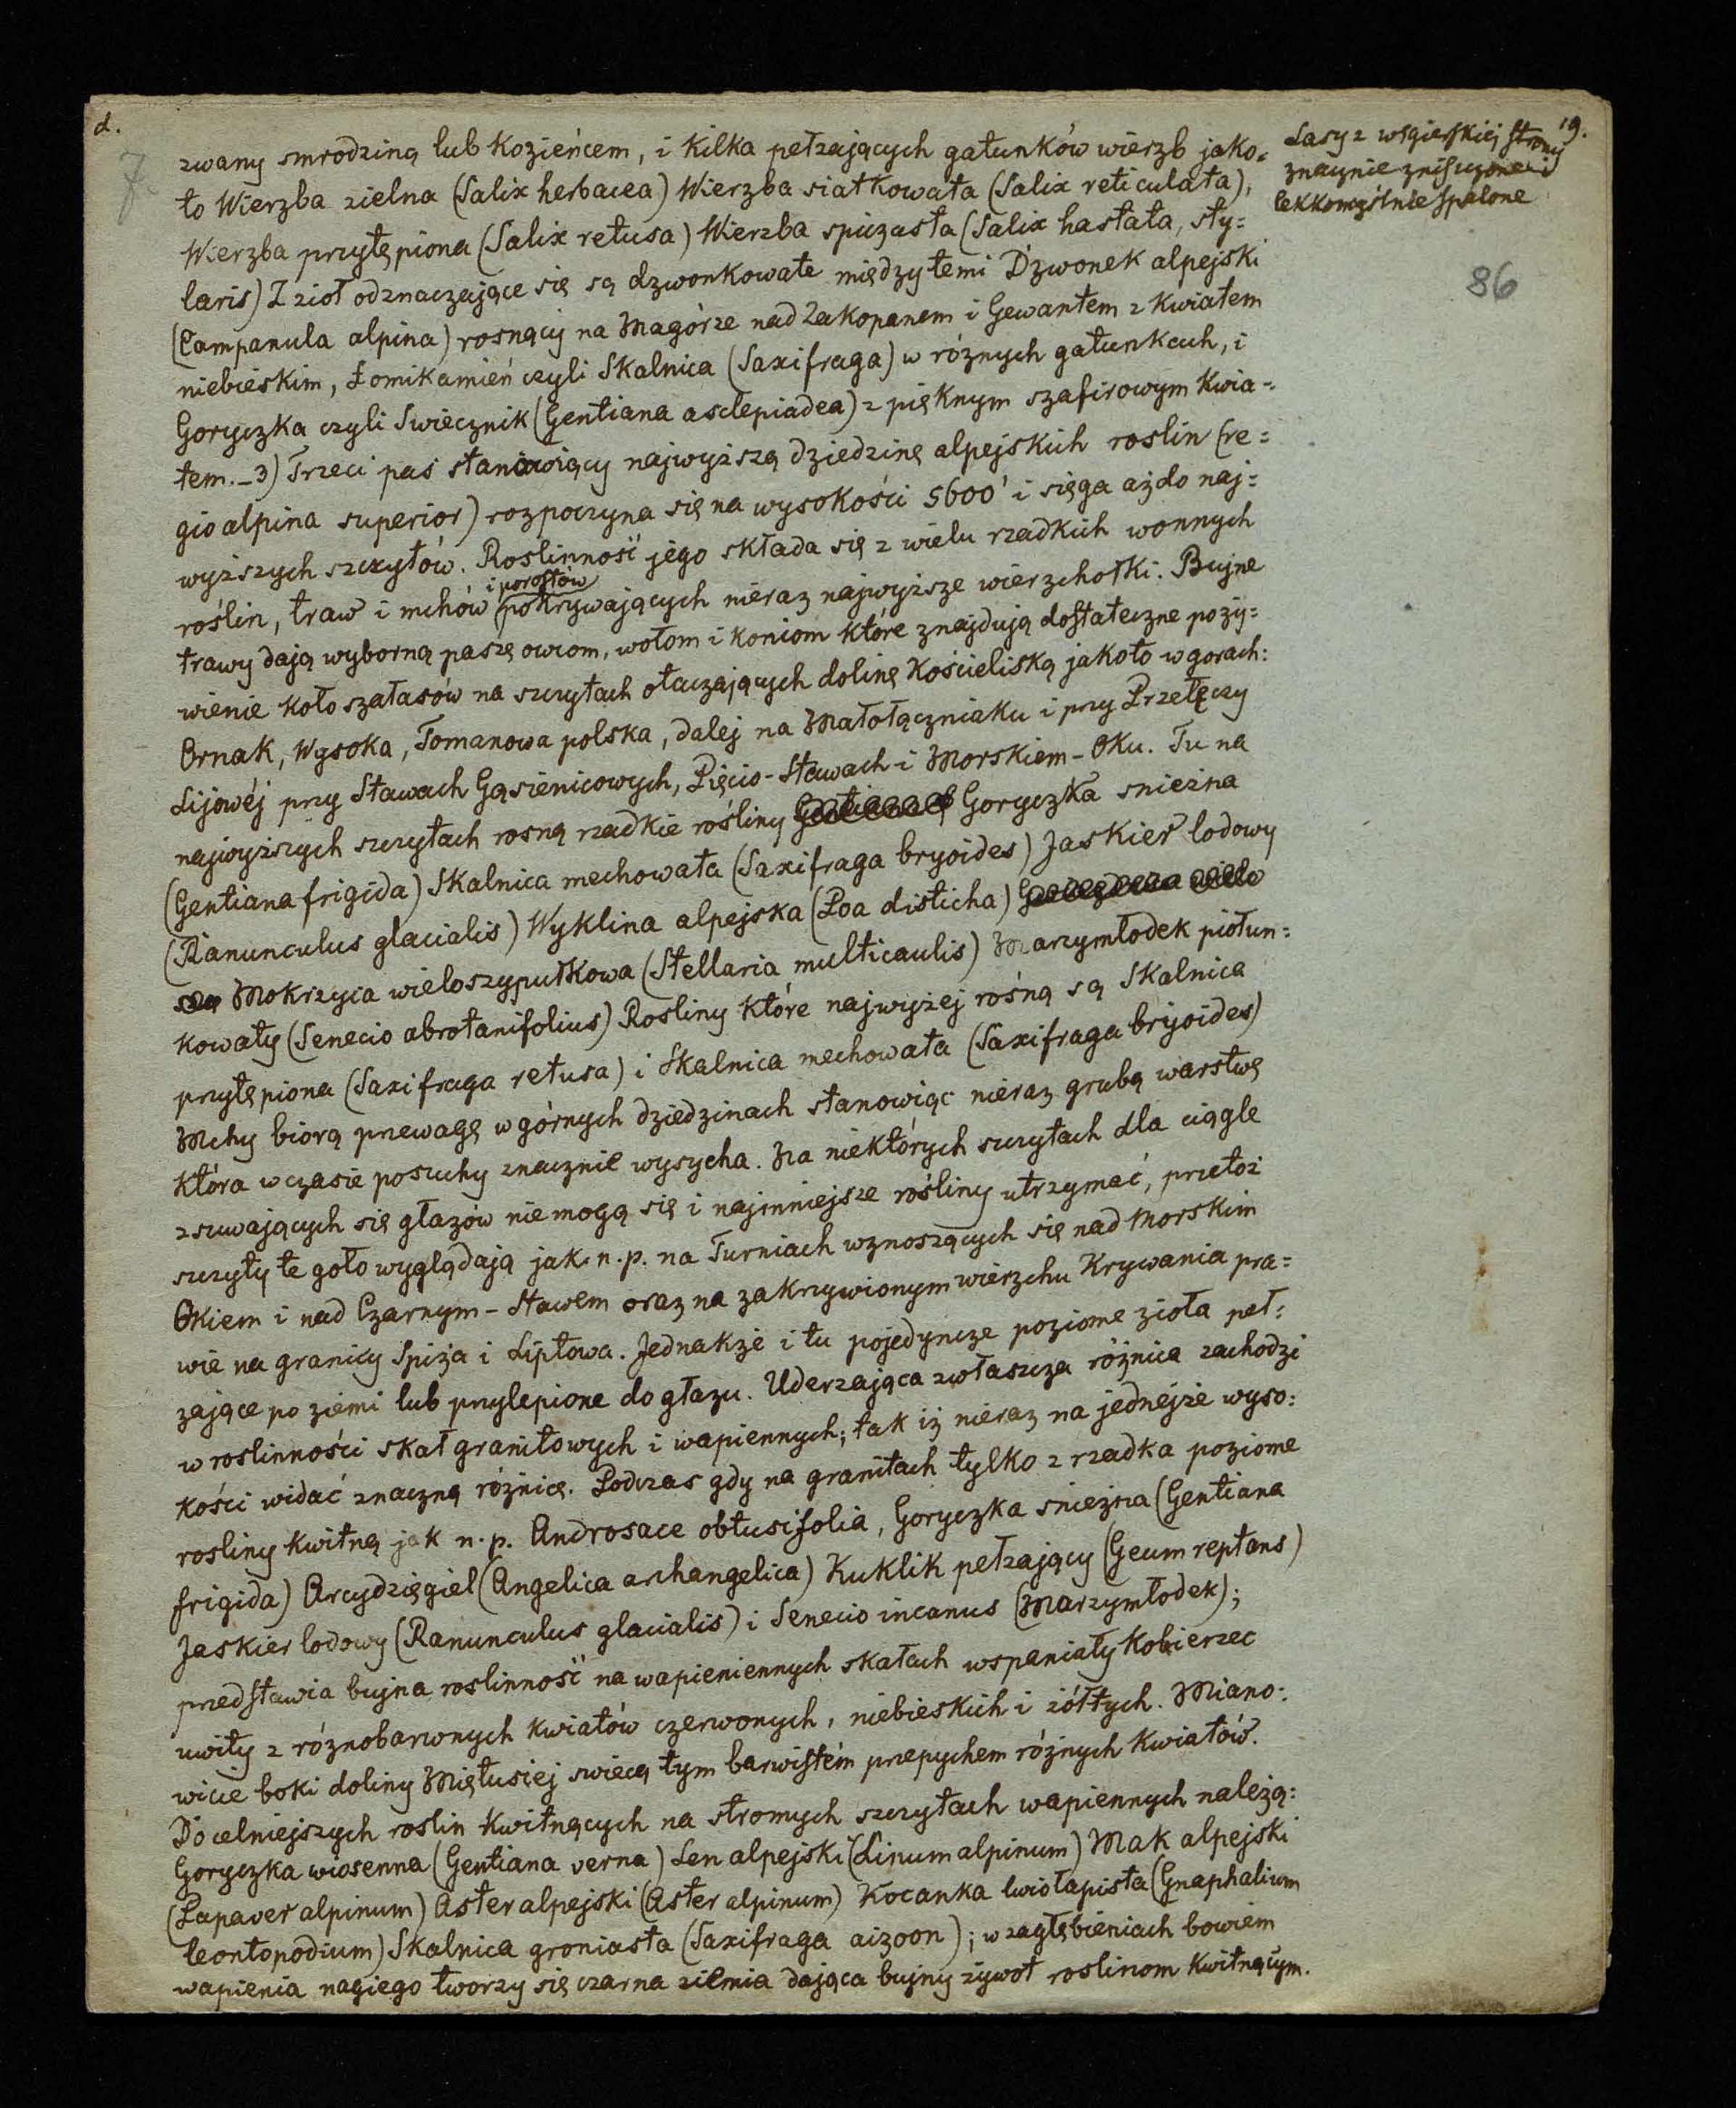 d.
19.
7
Lasy z węgierskiej strony
znacznie zniszczone i
lekkomyślnie spalone
86
zwany smrodziną lub Kozieńcem, i Kilka pełzających gatunków wierzb jako=
to Wierzba zielna (Salix herbacea) Wierzba siatkowata (Salix reticulata),
Wierzba przytępiona (Salix retusa) Wierzba spiczasta (Salix hastata, sty=
laris) Z zioł odznaczające się są dzwonkowate między temi Dzwonek alpejski
(Campanula alpina) rosnący na Magórze nad Zakopanem i Gewantem z Kwiatem
niebieskim, Łomikamień czyli Skalnica (Saxifraga) w różnych gatunkach, i
Goryczka czyli Swiecznik (Gentiana asclepiadea) z pięknym szafirowym Kwia=
tem._3) Trzeci pas stanowiący najwyższą dziedzinę alpejskich roslin (re=
gio alpina superior) rozpoczyna się na wysokości 5600' i sięga aż do naj=
wyższych szczytów. Roslinność jego składa się z wielu rzadkich wonnych
i porostów
roślin, traw i mchów pokrywających nieraz najwyższe wierzchołki. Bujne
trawy dają wyborną paszę owcom, wołom i koniom które znajdują dostateczne pożý=
wienie koło szałasów na szczytach otaczających dolinę Kościeliską jakoto w gorach:
Ornak, Wysoka, Tomanowa polska, dalej na Małołączniaku i przy Przełęczy
Lijowéj przy Stawach Gąsienicowych, Pięcio-Stawach i Morskiem-Oku. Tu na
najwyższych szczytach rosną rzadkie rośliny Goryczka snieżna
(Gentiana frigida) Skalnica mechowata (Saxifraga bryoides) Jaskier lodowy
(Ranunculus glacialis) Wyklina alpejska (Poa disticha)
Mokrzyca wieloszypułkowa (Stellaria multicaulis) Marzymłodek piołun=
kowaty (Senecio abrotanifolius) Rosliny które najwyżej rosną są Skalnica
przytępiona (Saxifraga retusa) i Skalnica mechowata (Saxifraga bryoides)
Mchy biorą przewagę w górnych dziedzinach stanowiąc nieraz grubą warstwę
która w czasie posuchy znacznie wysycha. Na niektórych szczytach dla ciągle
zsuwających się głazów niemogą się i najmniejsze rośliny utrzymać, przetoż
szczyty te goło wyglądają jak n.p. na Turniach wznoszących się nad Morskim
Okiem i nad Czarnym-Stawem oraz na zakrzywionym wierzchu Krywania pra=
wie na granicy Spiża i Liptowa. Jednakże i tu pojedyncze poziome zioła peł=
zające po ziemi lub przylepione do głazu. Uderzająca zwłaszcza różnica zachodzi
w roslinności skał granitowych i wapiennych; tak iż nieraz na jednejże wyso=
kości widać znaczną różnicę. Podczas gdy na granitach tylko z rzadka poziome
rosliny kwitną jak n.p. Androsace obtusifolia, Goryczka snieżna (Gentiana
frigida) Arcydzięgiel (Angelica archangelica) Kuklik pełzający (Geum reptans)
Jaskier lodowy (Ranunculus glacialis) i Senecio incanus (Marzymłodek);
przedstawia bujna roslinność na wapieniennych skałach wspaniały Kobierzec
uwity z różnobarwnych kwiatów czerwonych, niebieskich i żółtych. Miano=
wicie boki doliny Miętusiej swiecą tym barwistém przepychem różnych Kwiatów.
Do celniejszych roslin kwitnących na stromych szczytach wapiennych należą:
Goryczka wiosenna (Gentiana verna) Len alpejski (Linum alpinum) Mak alpejski
(Papaver alpinum) Aster alpejski (Aster alpinum) Kocanka lwiołapista (Gnaphalium
leontopodium) Skalnica groniasta (Saxifraga aizoon); w zagłębieniach bowiem
wapienia nagiego tworzy się czarna ziemia dająca bujny żywot roslinom kwitnącym.